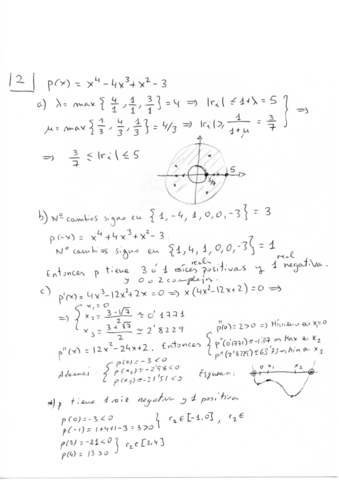 12
p(x) = x⁴ - 4x³ + x² - 3
a) λ = max { 4/1, 1/1, 3/1 } = 4 ⟹ |rᵢ| ≤ 1+λ = 5
μ = max { 1/3, 4/3, 1/3 } = 4/3 ⟹ |rᵢ| ≥ 1/(1+μ) = 3/7 } ⟹
⟹ 3/7 ≤ |rᵢ| ≤ 5
3/7 5
b) Nº cambios signo en {1, -4, 1, 0, 0, -3} = 3
p(-x) = x⁴ + 4x³ + x² - 3.
Nº cambios signo en {1, 4, 1, 0, 0, -3} = 1
Entonces p tiene 3 ó 1 raíces reales positivas y 1 real negativa.
y 0 o 2 complejas.
c) p'(x) = 4x³ - 12x² + 2x = 0 ⟹ x(4x² - 12x + 2) = 0 ⟹
⟹ { x₁ = 0
x₂ = (3-√7)/2 ≈ 0'1771
x₃ = (3+√7)/2 ≈ 2'8229
p''(x) = 12x² - 24x + 2. Entonces { p''(0) = 2 > 0 ⟹ Mínimo en x=0
Además: { p(0) = -3 < 0
p(x₃) = -21'51 < 0
Esquema:
0 x₁ x₂
p tiene 1 raíz negativa y 1 positiva
p(0) = -3 < 0
p(-1) = 1+4+1-3 = 3 > 0 } r₁ ∈ [-1, 0], r₂ ∈
p(3) = -21 < 0
p(4) = 13 > 0 } r₂ ∈ [3, 4]